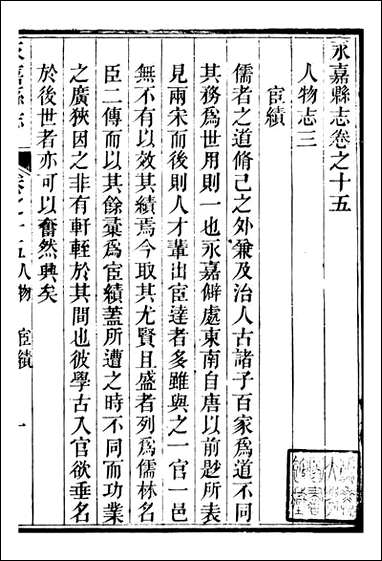 永嘉縣志卷之十五
人物志三
宦績
儒者之道脩己之外兼及治人古諸子百家爲道不同
其務爲世用則一也永嘉僻處東南自唐以前尟所表
見兩宋而後則人才輩出宦達者多雖與之一官一邑
無不有以效其績焉今取其尤賢且盛者列爲儒林名
臣二傳而以其餘彙爲宦績蓋所遭之時不同而功業
之廣狹因之非有軒輊於其間也彼學古入官欲垂名
於後世者亦可以奮然興矣
永嘉縣志 卷之十五人物 宦績 一